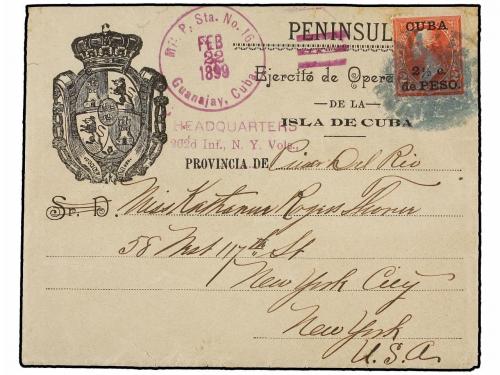 PENINSUL
CUBA
2½ c.
de PESO.
Mil. P. Sta. No. 16
FEB
22
1899
Guanajay, Cuba.
Ejercito de Opera
DE LA
ISLA DE CUBA
HEADQUARTERS
202d Inf., N. Y. Vols.,
PROVINCIA DE Pinar Del Rio
Sr. D. Miss Katharine Rogers
58 West 117th St
New York City
New York
U.S.A.